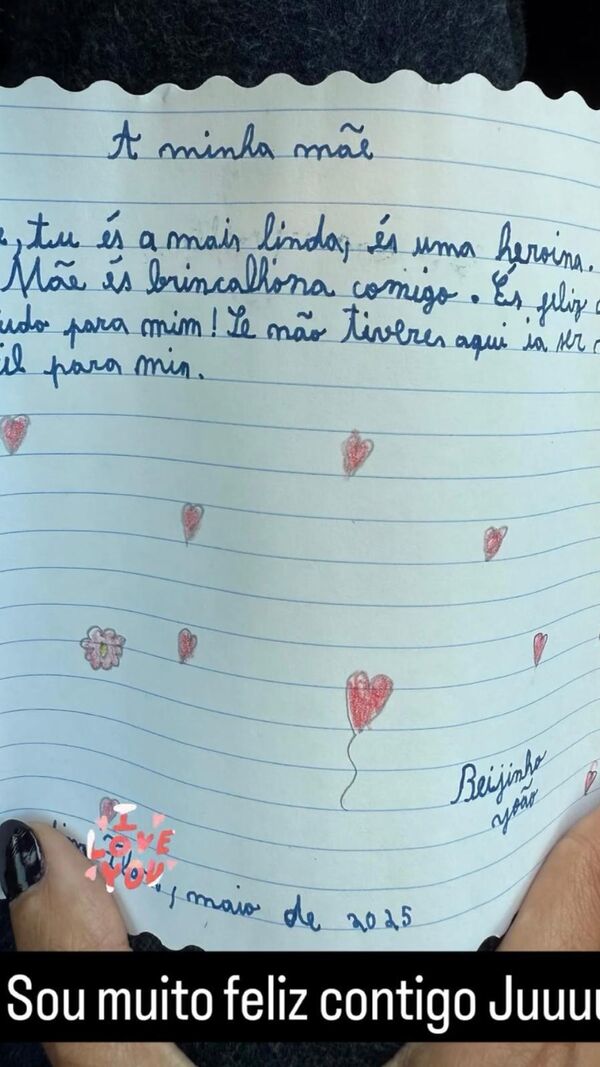 A minha mãe
, tu és a mais linda, és uma heroina.
Mãe és brincalhona comigo. És feliz
udo para mim! Se não tiveres aqui ia ser
il para min.
Beijinho
João
I
LOVE
YOU
, maio de 2025
Sou muito feliz contigo Juuuu